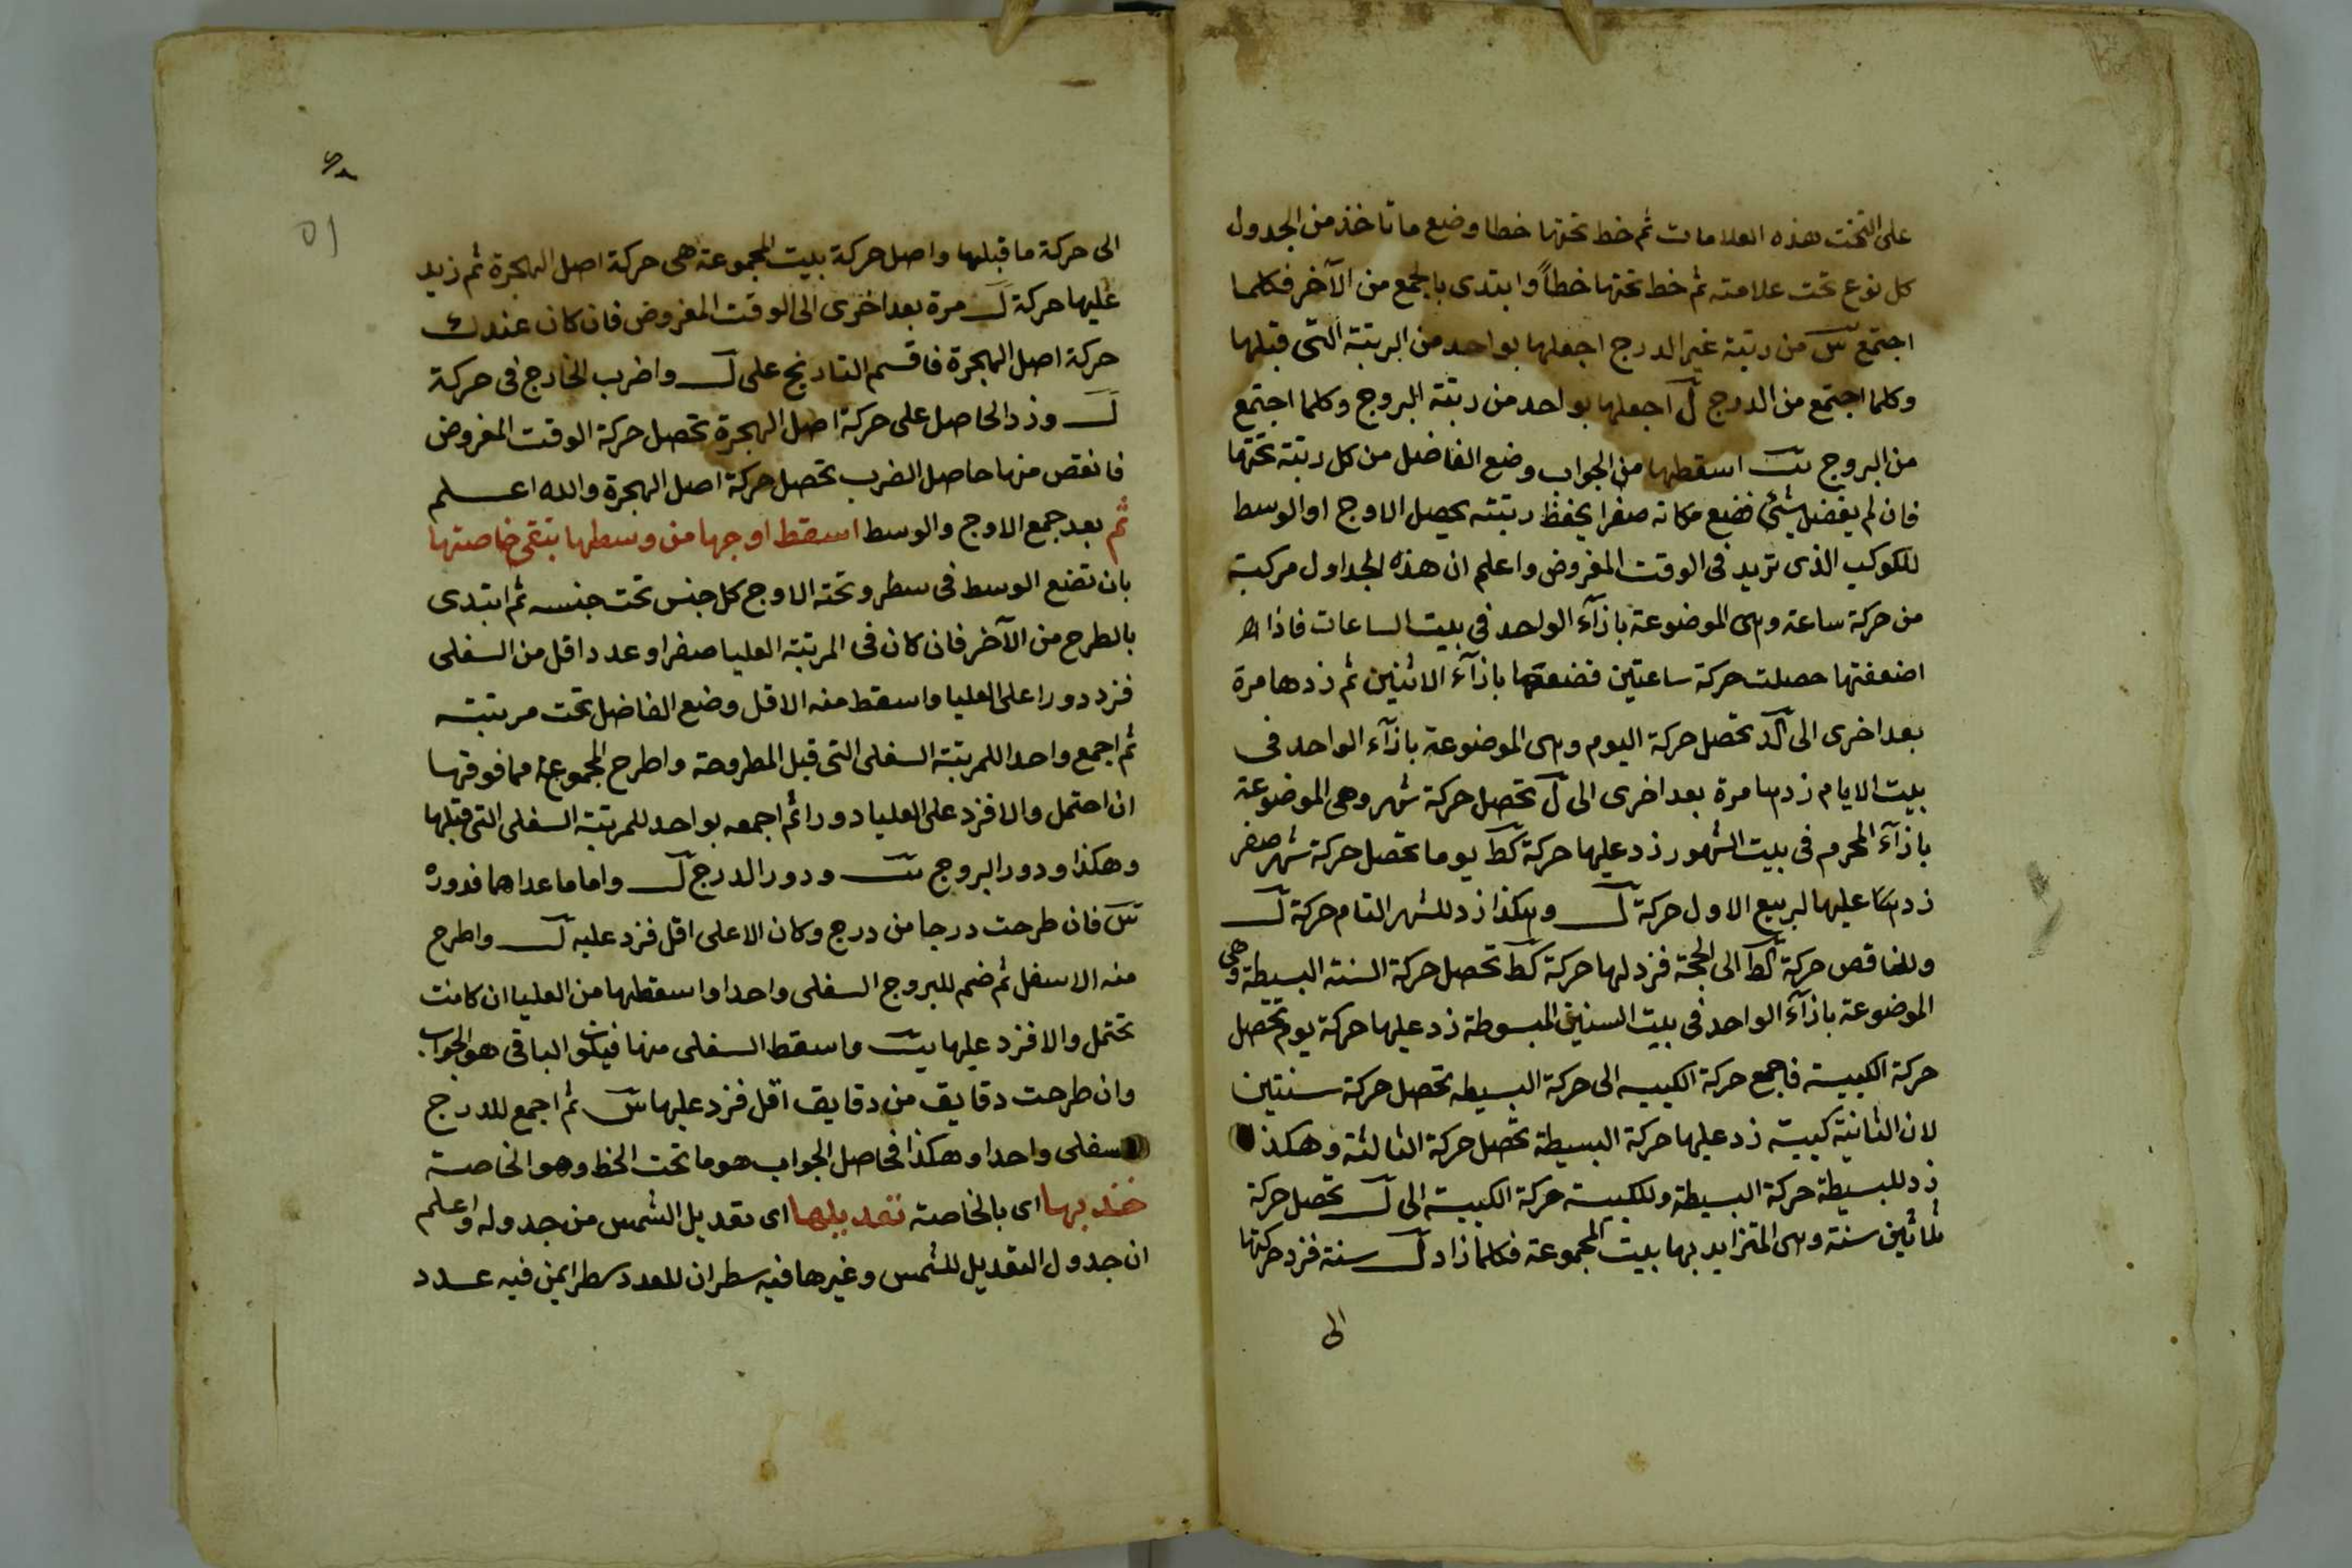 على التخت هذه العلامات ثم خط تحتها خطا وضع ما تاخذ من الجدول
كل نوع تحت علامته ثم خط تحتها خطاً وابتدى بالجمع من الآخر فكلما
اجتمع س من رتبة غير الدرج اجعلها بواحد من الرتبة التى قبلها
وكلما اجتمع من الدرج ل اجعلها بواحد من رتبة البروج وكلما اجتمع
من البروج يب اسقطها من الجواب وضع الفاضل من كل رتبة تحتها
فان لم يفضل شئ فضع مكانه صفرا يحفظ رتبته يحصل الاوج او الوسط
للكوكب الذى تريد فى الوقت المفروض واعلم ان هذه الجداول مركبة
من حركة ساعة وهى الموضوعة بازآء الواحد فى بيت الساعات فاذا
اضعفتها حصلت حركة ساعتين فضعها بازآء الاثنين ثم زدها مرة
بعد اخرى الى كد تحصل حركة اليوم وهى الموضوعة بازآء الواحد فى
بيت الايام زدها مرة بعد اخرى الى ل تحصل حركة شهر وهى الموضوعة
بازآء المحرم فى بيت الشهور زد عليها حركة كط يوما تحصل حركة شهر صفر
زد عليها لربيع الاول حركة ل وهكذا زد للشهر التام حركة ل
وللناقص حركة كط الى الحجة فزد لها حركة كط تحصل حركة السنة البسيطة وهى
الموضوعة بازآء الواحد فى بيت السنين المبسوطة زد عليها حركة يوم تحصل
حركة الكبيسة فاجمع حركة الكبيسه الى حركة البسيطه تحصل حركة سنتين
لان الثانية كبيسة زد عليها حركة البسيطة تحصل حركة الثالثة وهكذا
زد للبسيطة حركة البسيطة وللكبيسة حركة الكبيسة الى ل تحصل حركة
ثلاثين سنة وهى المتزايد بها بيت المجموعة فكلما زاد ل سنة فزد حركتها
الى
٥١
الى حركة ما قبلها واصل حركة بيت المجموعة هى حركة اصل الهجرة ثم زيد
عليها حركة ل مرة بعد اخرى الى الوقت المفروض فان كان عندك
حركة اصل الهجرة فاقسم التاريخ على ل واضرب الخارج فى حركة
ل وزد الحاصل على حركة اصل الهجرة تحصل حركة الوقت المفروض
فانقص منها حاصل الضرب تحصل حركة اصل الهجرة والله اعلم
ثم بعد جمع الاوج والوسط اسقط اوجها من وسطها تبقى خاصتها
بان تضع الوسط فى سطر وتحته الاوج كل جنس تحت جنسه ثم ابتدى
بالطرح من الآخر فان كان فى المرتبة العليا صفرا وعددا اقل من السفلى
فزد دورا على العليا واسقط منه الاقل وضع الفاضل تحت مرتبته
ثم اجمع واحدا للمرتبة السفلى التى قبل المطروحة واطرح المجموعة مما فوقها
ان احتمل والا فزد على العليا دورا ثم اجمعه بواحد للمرتبة السفلى التى قبلها
وهكذا ودور البروج يب ودور الدرج ل واما ما عداهما فدوره
س فان طرحت درجا من درج وكان الاعلى اقل فزد عليه ل واطرح
منه الاسفل ثم ضم للبروج السفلى واحدا واسقطها من العليا ان كانت
تحتمل والا فزد عليها يب واسقط السفلى منها فيكون الباقى هو الجواب
وان طرحت دقايق من دقايق اقل فزد عليها س ثم اجمع للدرج
السفلى واحدا وهكذا فحاصل الجواب هو ما تحت الخط وهو الخاصة
خذ بها اى بالخاصة تعديلها اى تعديل الشمس من جدوله واعلم
ان جدول التعديل للشمس وغيرها فيه سطران للعدد سطر ايمن فيه عدد